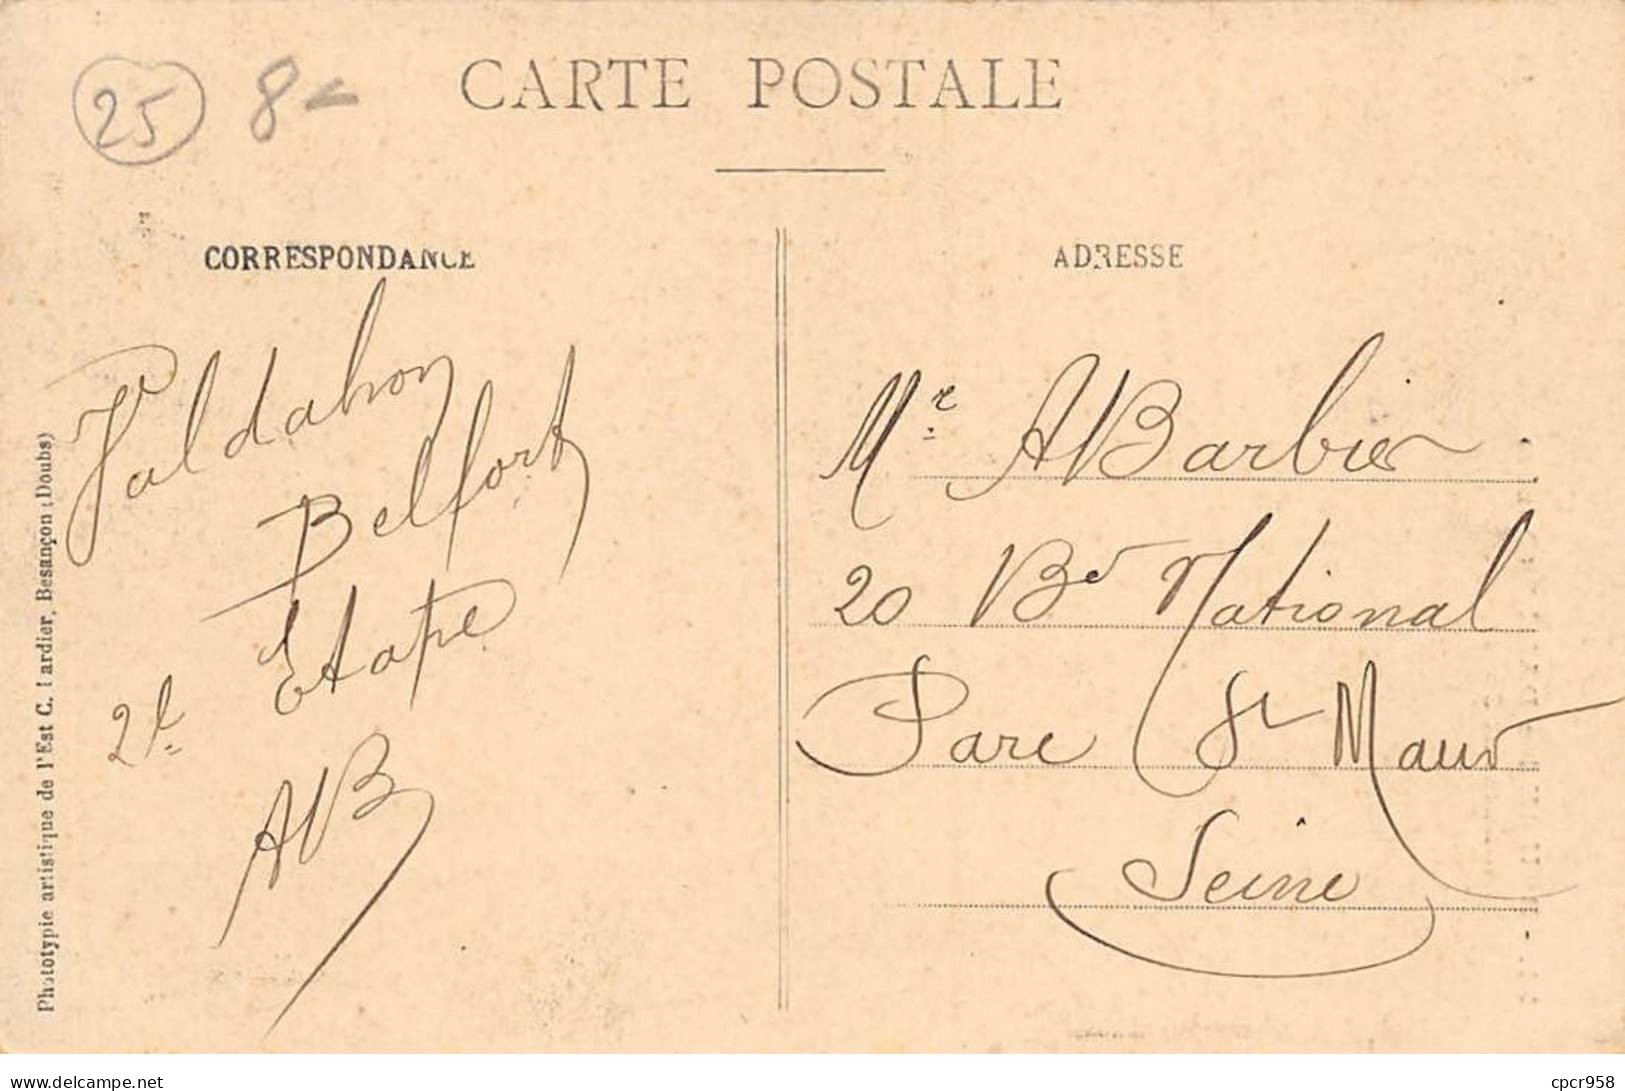 25 8-
CARTE POSTALE
CORRESPONDANCE
ADRESSE
Valdahon
Belfort
2e Etape
AB
Mr ABarbier
20 Bd National
Parc St Maur
Seine
Phototypie artistique de l'Est C. Lardier, Besançon (Doubs)
www.delcampe.net
cpcr958